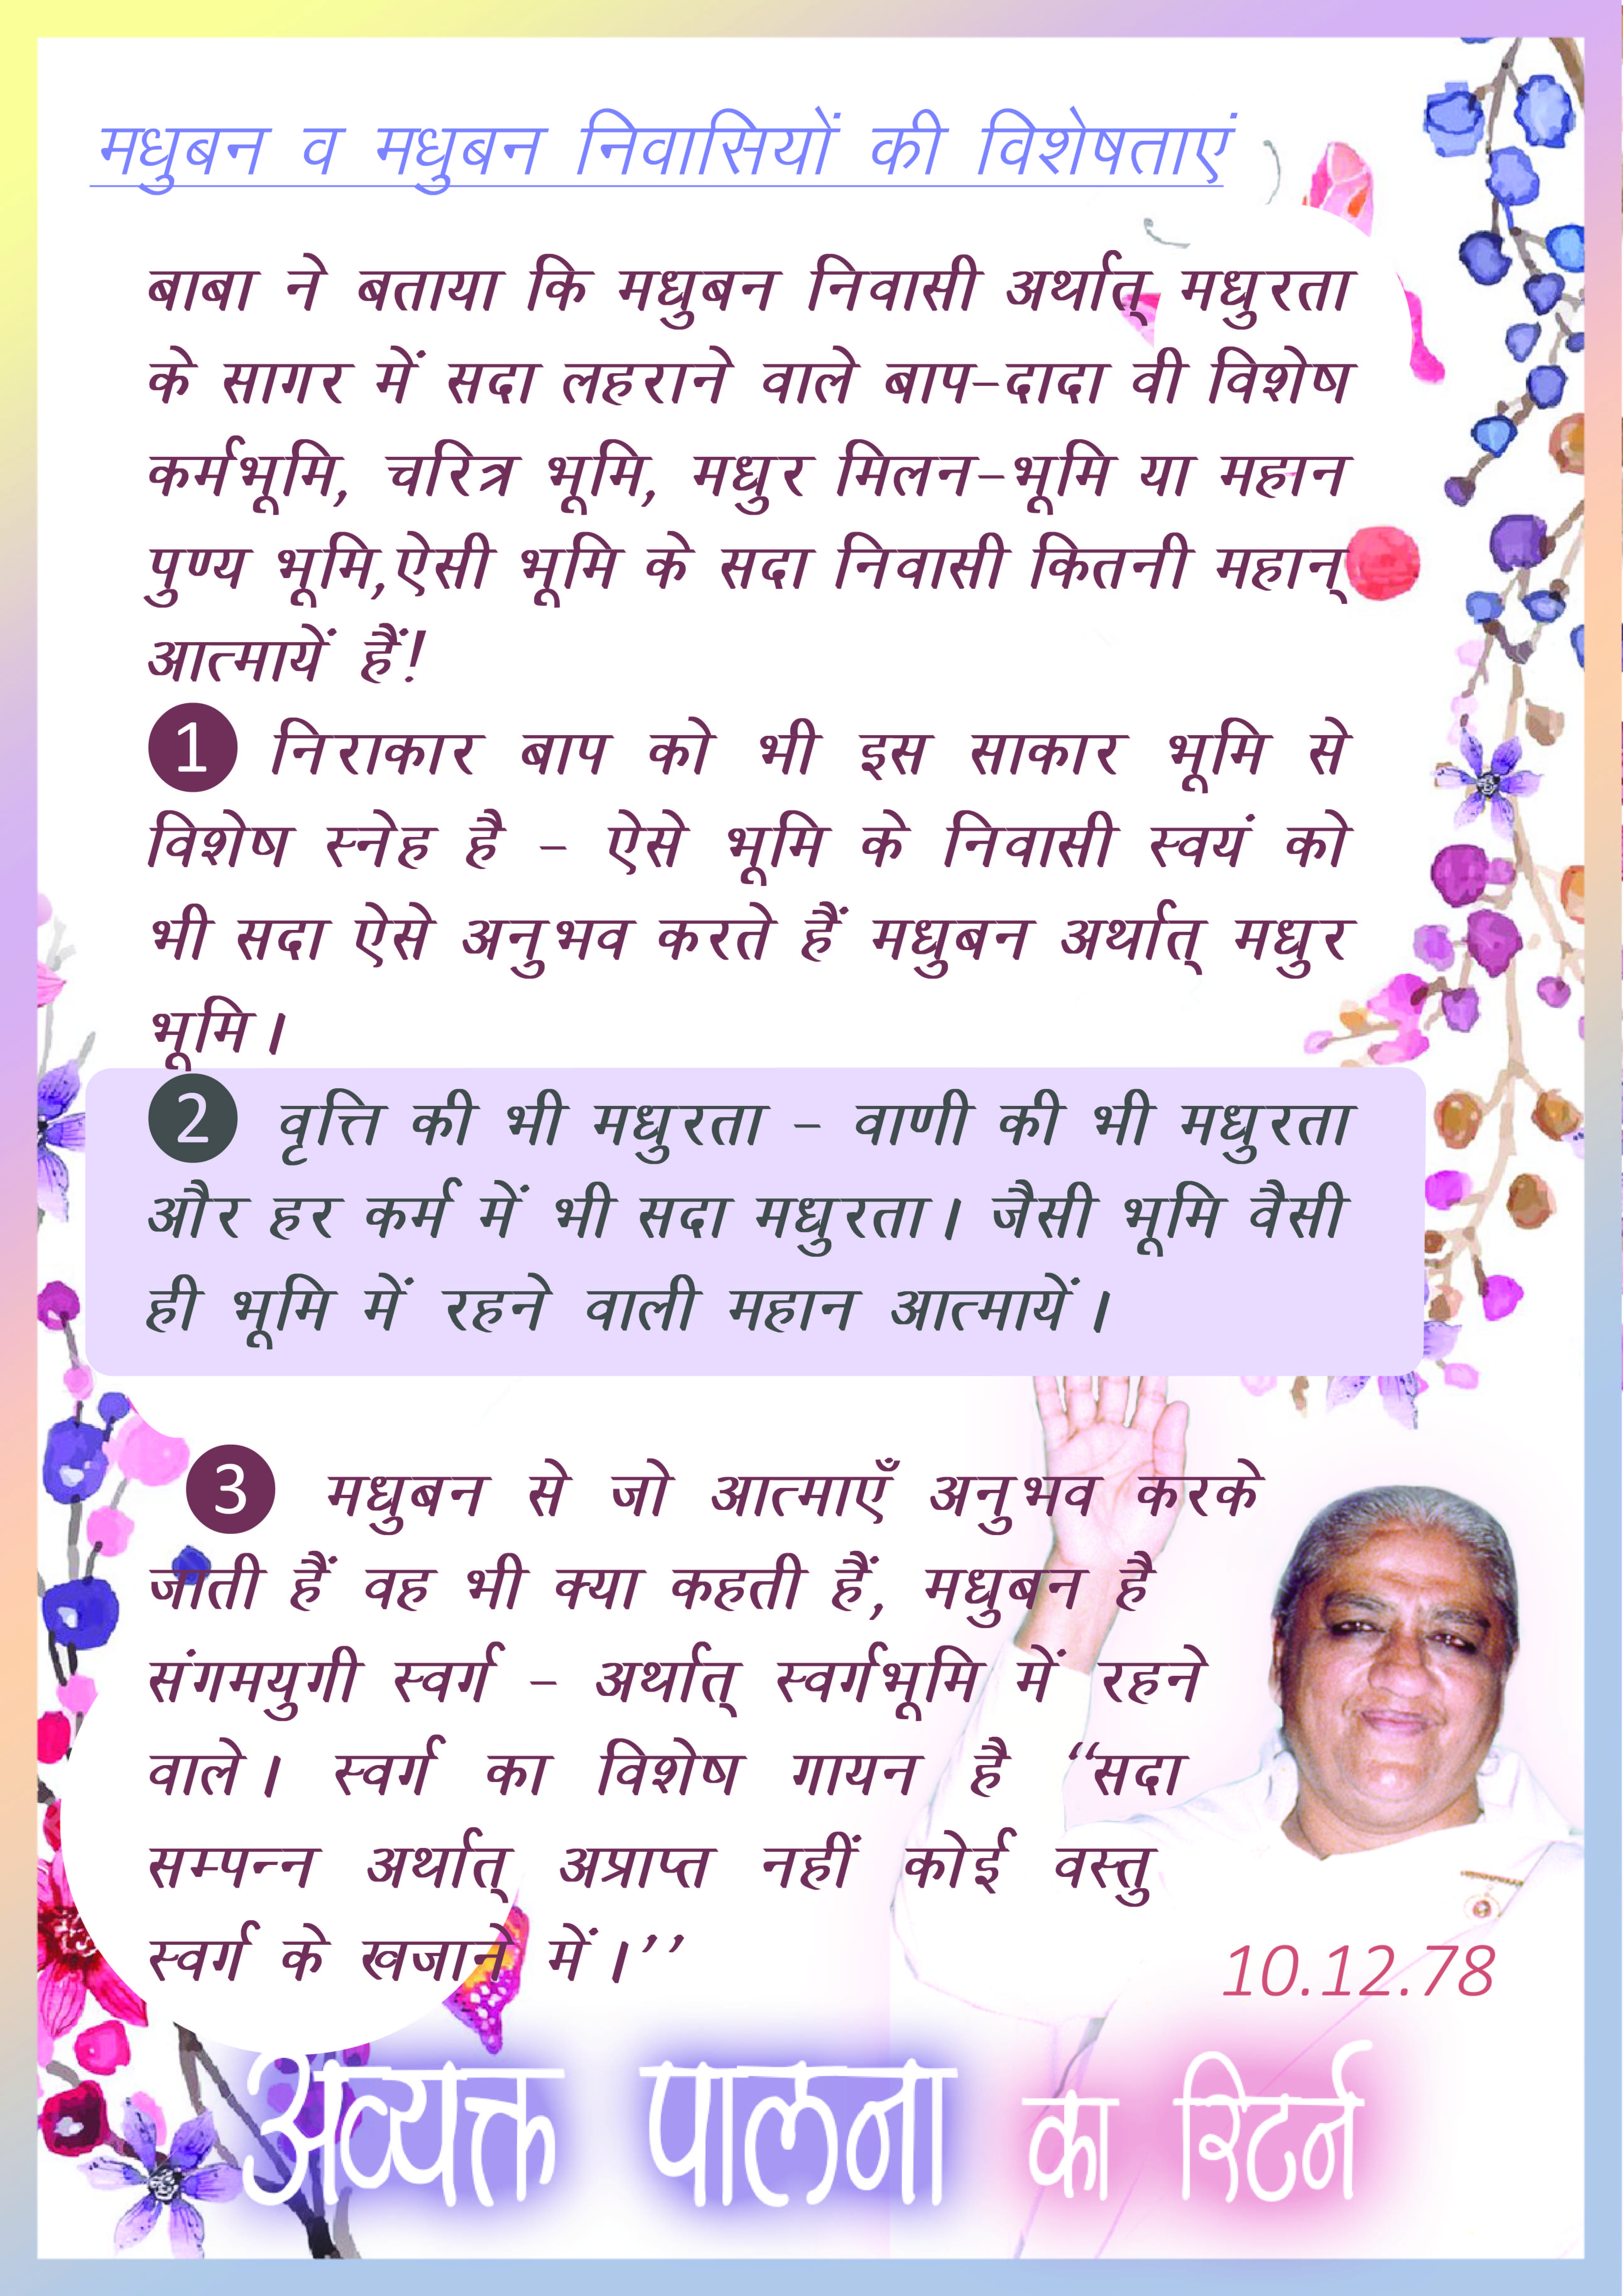 मधुबन व मधुबन निवासियों की विशेषताएं
बाबा ने बताया कि मधुबन निवासी अर्थात् मधुरता
के सागर में सदा लहराने वाले बाप-दादा वी विशेष
कर्मभूमि, चरित्र भूमि, मधुर मिलन-भूमि या महान
पुण्य भूमि,ऐसी भूमि के सदा निवासी कितनी महान्
आत्मायें हैं!
1 निराकार बाप को भी इस साकार भूमि से
विशेष स्नेह है - ऐसे भूमि के निवासी स्वयं को
भी सदा ऐसे अनुभव करते हैं मधुबन अर्थात् मधुर
भूमि।
2 वृत्ति की भी मधुरता - वाणी की भी मधुरता
और हर कर्म में भी सदा मधुरता। जैसी भूमि वैसी
ही भूमि में रहने वाली महान आत्मायें।
3 मधुबन से जो आत्माएँ अनुभव करके
जाती हैं वह भी क्या कहती हैं, मधुबन है
संगमयुगी स्वर्ग - अर्थात् स्वर्गभूमि में रहने
वाले। स्वर्ग का विशेष गायन है “सदा
सम्पन्न अर्थात् अप्राप्त नहीं कोई वस्तु
स्वर्ग के खजाने में।’’
10.12.78
अव्यक्त पालना का रिटर्न